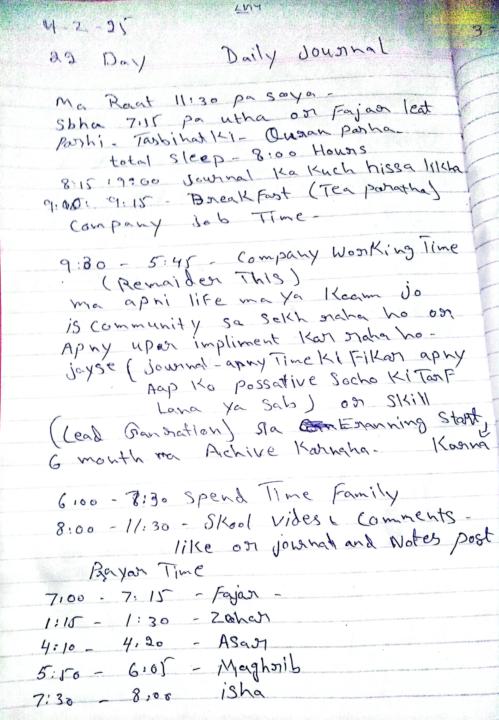 4-2-25
22 Day Daily Journal
Ma Raat 11:30 pa soya -
Sbha 7:15 pa utha or Fajar leat
Parhi - Tasbihat Ki - Quran parha
total sleep - 8:00 Hours
8:15 , 9:00 Journal Ka Kuch hissa likha
9:00 - 9:15 - Breakfast (Tea paratha)
Company Job Time -
9:30 - 5:45 - Company Working Time
(Remaider This)
ma apni life ma ya Kaam jo
is Community sa sekh raha ho or
Apny uper impliment Kar raha ho -
jayse (Journal - apny Time Ki Fikar apny
Aap Ko possative Socho Ki Tarf
Lana ya Sab) or Skill
(Lead Ganration) sa Eranning Start
Karna
6 mouth ma Achive Karnaha.
6:00 - 7:30 Spend Time Family
8:00 - 11:30 - Skool vides & Comments -
like or journal and Notes post
Prayar Time
7:00 - 7:15 - Fajar -
1:15 - 1:30 - Zohar
4:10 - 4:20 - Asar
5:50 - 6:05 - Maghrib
7:30 - 8:00 isha